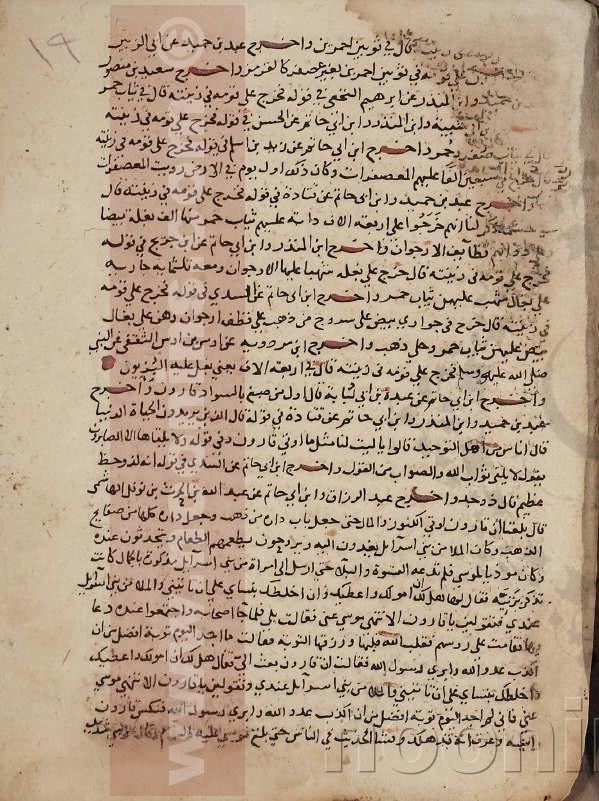 ١٩
قال في ثوبين احمرين واخرج عبد بن حميد عن ابي الزبير
على قومه في ثوبين احمرين بغير عصفر كالقرمز واخرج سعيد بن منصور
حميد وابن المنذر عن ابرهيم النخعي في قوله فخرج على قومه في زينته قال في ثياب حمر
شيبة وابن المنذر وابن ابي حاتم عن الحسن في قوله فخرج على قومه في زينته
صفر وحمر واخرج ابن ابي حاتم عن زيد بن اسلم في قوله فخرج على قومه في زينته
سبعين الفا عليهم المعصفرات وكان ذلك اول يوم في الارض رويت المعصفرات
واخرج عبد بن حميد وابن ابي حاتم عن قتادة في قوله فخرج على قومه في زينته قال
ذكر لنا انهم خرجوا على اربعة الاف دابة عليهم ثياب حمر منها الف بغلة بيضا
قطايف الارجوان واخرج ابن المنذر وابن ابي حاتم عن ابن جريج في قوله
فخرج على قومه في زينته قال خرج على بغلة شهبا عليها الارجوان ومعه ثلثماية جارية
على بغال شهب عليهن ثياب حمر واخرج ابن ابي حاتم عن السدي في قوله فخرج على قومه
في زينته قال خرج في جواري بيض على سروج من ذهب على قطف ارجوان وهن على بغال
بيض عليهن ثياب حمر وحلي ذهب واخرج ابن مردويه عن اوس بن اوس الثقفي عن النبي
صلى الله عليه وسلم فخرج على قومه في زينته قال في اربعة الاف بغل يعني عليه البزيون
واخرج ابن ابي حاتم عن عبدة بن ابي لبابة قال اول من صبغ بالسواد قارون واخرج
عبد بن حميد وابن المنذر وابن ابي حاتم عن قتادة في قوله قال الذين يريدون الحياة الدنيا
قال اناس من اهل التوحيد قالوا يا ليت لنا مثل ما اوتي قارون وفي قوله ولا يلقاها الا الصابرون
يقول لا يلقى ثواب الله والصواب من القول واخرج ابن ابي حاتم عن السدي في قوله انه لذو حظ
عظيم قال ذو جد واخرج عبد الرزاق وابن ابي حاتم عن عبد الله بن الحرث بن نوفل الهاشمي
قال بلغنا ان قارون اوتي الكنوز والمال حتى جعل باب داره من ذهب وجعل داره كلها من صفايح
الذهب وكان الملا من بني اسرايل يغدون اليه ويروحون يطعمهم الطعام ويتحدثون عنده
وكان موذيا لموسى فلم تدعه القسوة والبلا حتى ارسل الى امراة من بني اسرايل مذكورة بالجمال كانت
تذكر بزنية فقال لها هل لك ان امولك واعطيك وان اخلطك بنسائي على ان تاتيني والملا من بني اسرايل
عندي فتقولين يا قارون الا تنهى موسى عني فقالت بلى فلما جا اصحابه واجتمعوا عنده دعا
بها فقامت على روسهم فقلب الله قلبها ورزقها التوبة فقالت ما اجد اليوم توبة افضل من ان
اكذب عدو الله وابري رسول الله فقالت ان قارون بعث الي فقال هل لك ان امولك واعطيك
واخلطك بنسائي على ان تاتيني والملا من بني اسرايل عندي وتقولين يا قارون الا تنهى موسى
عني فاني لم اجد اليوم توبة افضل من ان اكذب عدو الله وابري رسول الله فنكس قارون
راسه وعرف انه قد هلك وفشا الحديث في الناس حتى بلغ موسى عليه السلام وكان موسى شديد